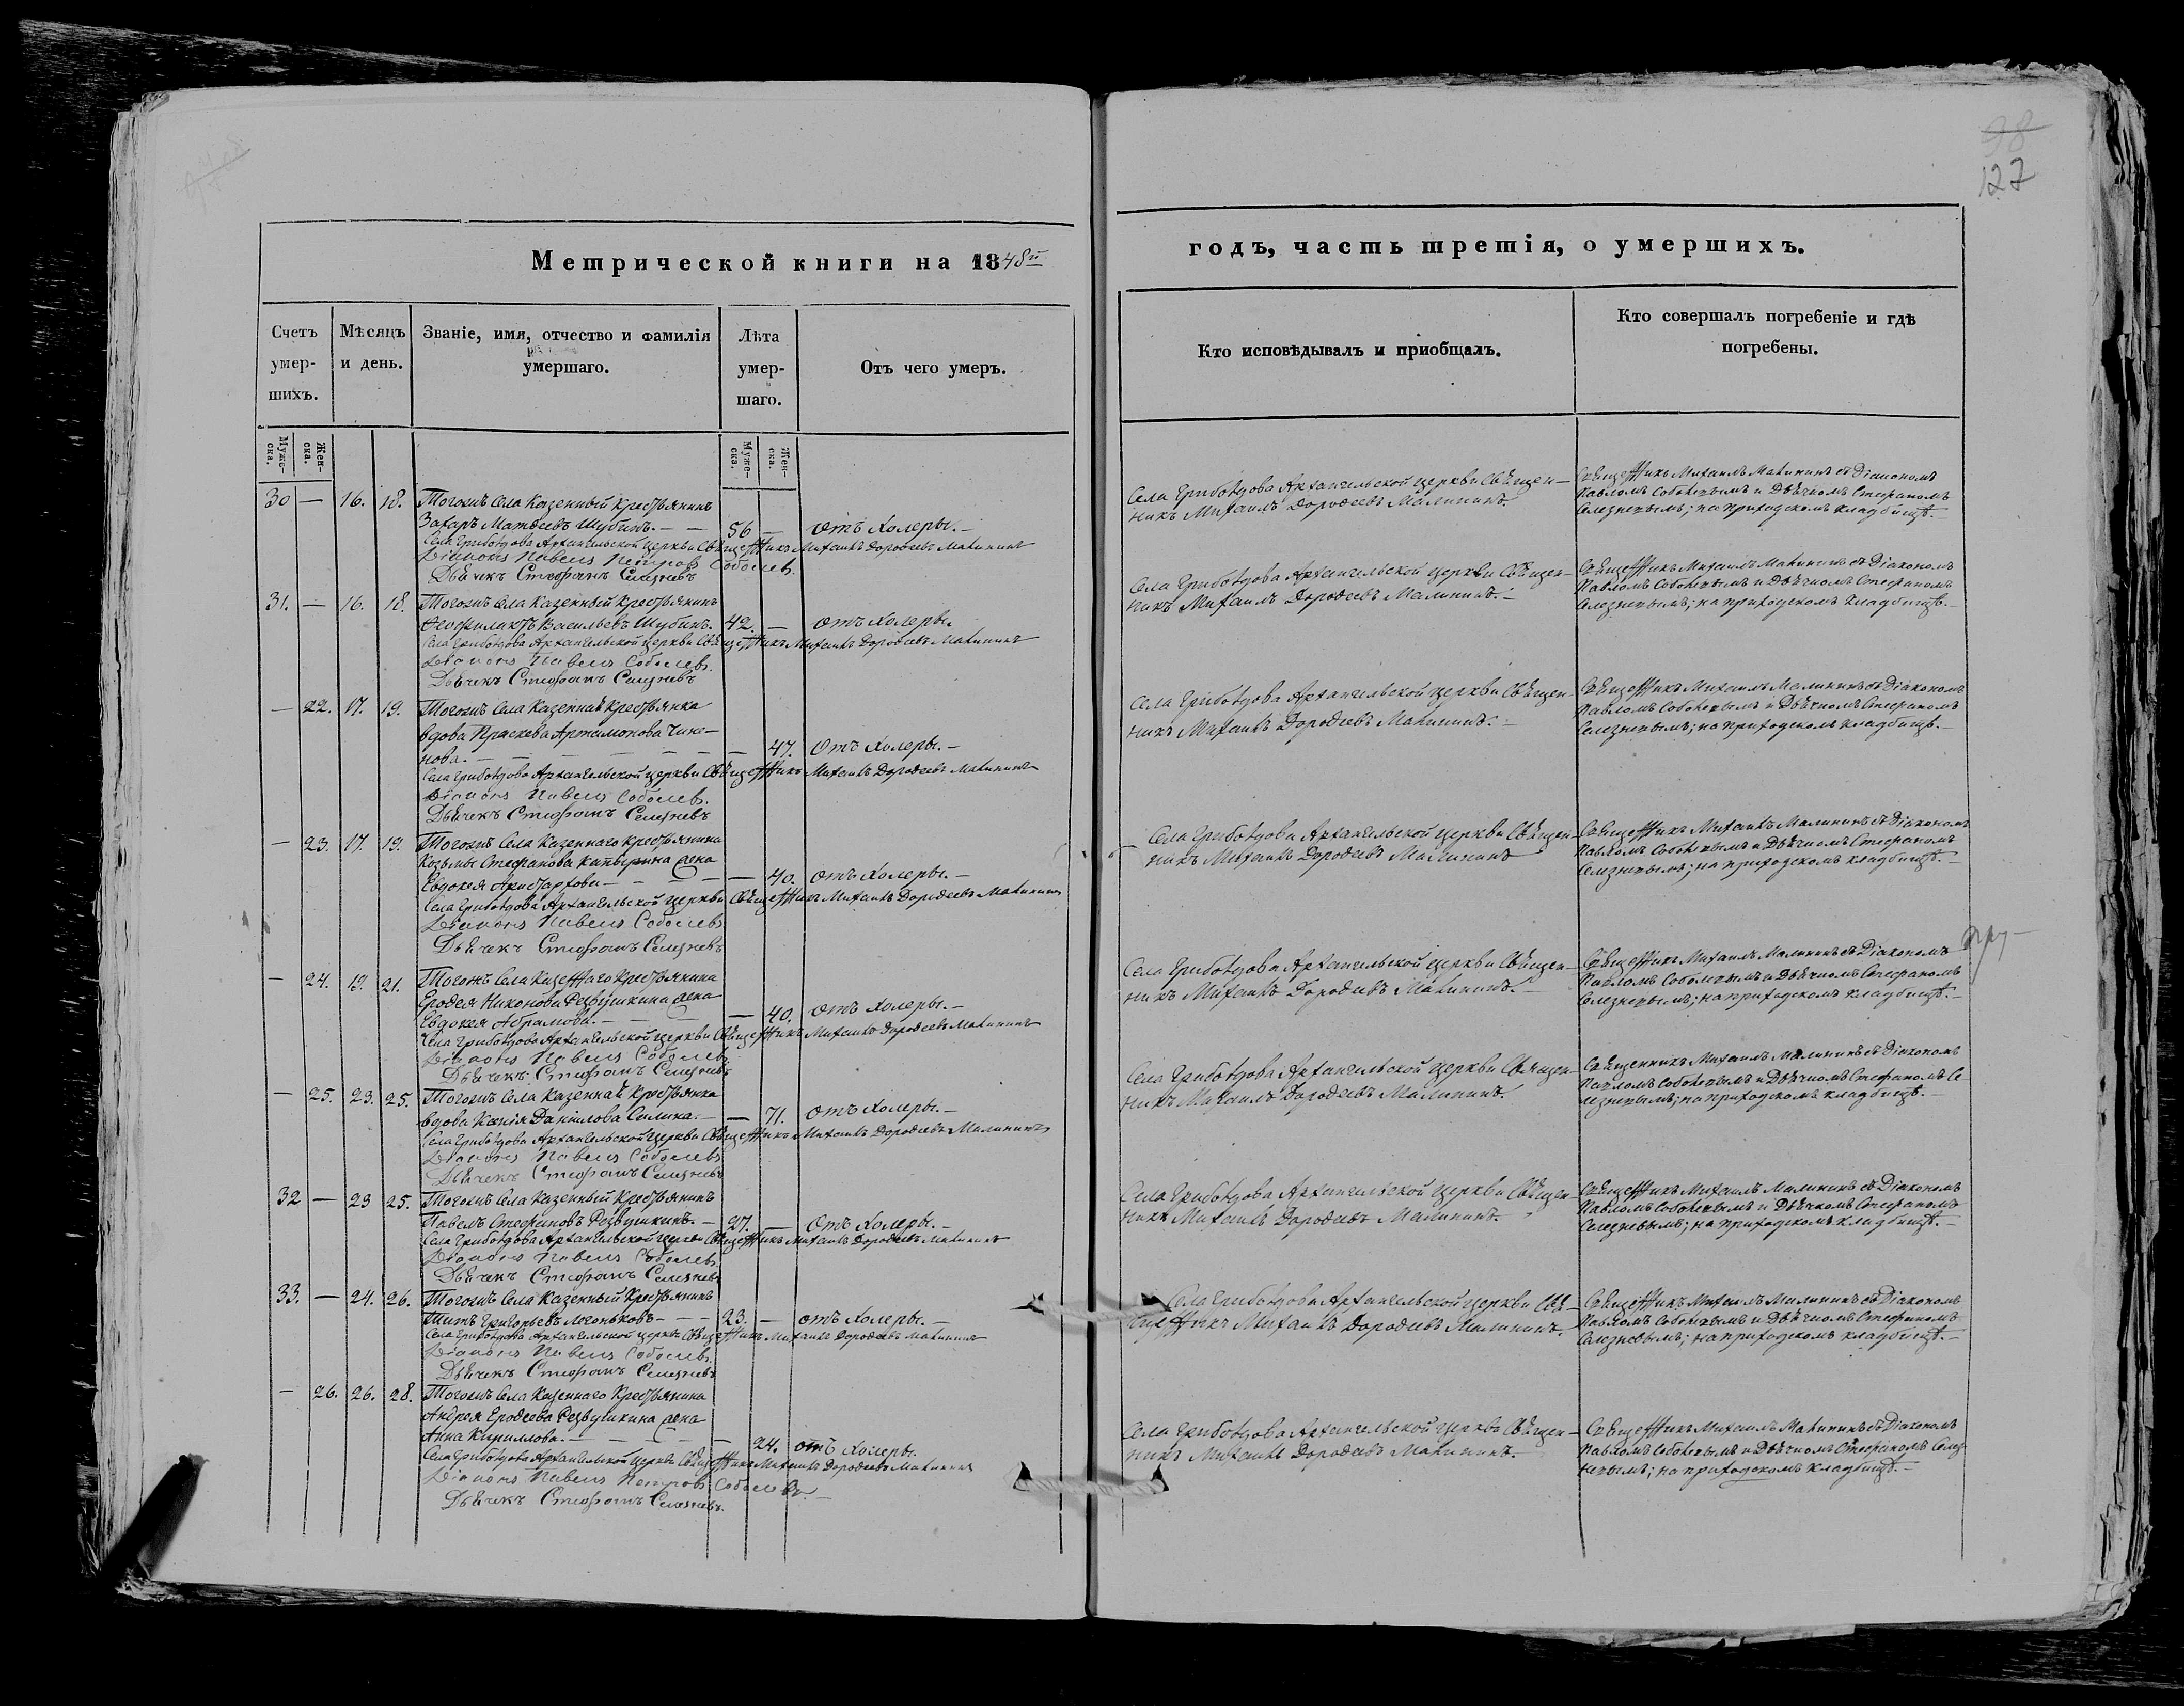 127
Метрической книги на 1848й
годъ, часть третія, о умершихъ.
Счетъ умер- шихъ.
Мѣсяцъ и день.
Званіе, имя, отчество и фамилія умершаго.
Лѣта умер- шаго.
Отъ чего умеръ.
Кто исповѣдывалъ и приобщалъ.
Кто совершалъ погребеніе и гдѣ погребены.
Муже- ска.
Жен- ска.
Муже- ска.
Жен- ска.
30 — 16. 18. Тогожъ Села Казенный Крестьянинъ
Захаръ Матвеевъ Шубинъ. — — 56 — отъ Холеры. —
Села Грибоѣдова Архангельской церкви Священникъ Михаилъ Дорофеевъ Малининъ
Діаконъ Павелъ Петровъ Соболевъ.
Дьячекъ Стефанъ Селезневъ
Села Грибоѣдова Архангельской церкви Священ-
никъ Михаилъ Дорофеевъ Малининъ.
Священникъ Михаилъ Малининъ съ Діакономъ
Павломъ Соболевымъ и Дьячкомъ Стефаномъ
Селезневымъ; на приходскомъ кладбищѣ. —
31. — 16. 18. Тогожъ Села Казенный Крестьянинъ
Феофилактъ Васильевъ Шубинъ. 42. — отъ Холеры.
Села Грибоѣдова Архангельской церкви Священникъ Михаилъ Дорофеевъ Малининъ
Діаконъ Павелъ Соболевъ.
Дьячекъ Стефанъ Селезневъ
Села Грибоѣдова Архангельской церкви Священ-
никъ Михаилъ Дорофеевъ Малининъ. —
Священникъ Михаилъ Малининъ съ Діакономъ
Павломъ Соболевымъ и Дьячкомъ Стефаномъ
Селезневымъ; на приходскомъ кладбищѣ. —
— 22. 17. 19. Тогожъ Села Казенная Крестьянка
вдова Праскева Артамонова Чика-
нова. — — — — — — — 47. Отъ Холеры. —
Села Грибоѣдова Архангельской церкви Священникъ Михаилъ Дорофеевъ Малининъ
Діаконъ Павелъ Соболевъ.
Дьячекъ Стефанъ Селезневъ
Села Грибоѣдова Архангельской церкви Священ-
никъ Михаилъ Дорофеевъ Малининъ. —
Священникъ Михаилъ Малининъ съ Діакономъ
Павломъ Соболевымъ и Дьячкомъ Стефаномъ
Селезневымъ; на приходскомъ кладбищѣ. —
— 23. 17. 19. Тогожъ Села Казеннаго Крестьянина
Козьмы Стефанова Капырина жена
Евдокея Аристархова — — — — — 40. отъ Холеры. —
Села Грибоѣдова Архангельской церкви Священникъ Михаилъ Дорофеевъ Малининъ
Діаконъ Павелъ Соболевъ
Дьячекъ Стефанъ Селезневъ
Села Грибоѣдова Архангельской церкви Священ-
никъ Михаилъ Дорофеевъ Малининъ
Священникъ Михаилъ Малининъ съ Діакономъ
Павломъ Соболевымъ и Дьячкомъ Стефаномъ
Селезневымъ; на приходскомъ кладбищѣ. —
— 24. 19. 21. Тогожъ Села Казеннаго Крестьянина
Ерофея Никонова Резвушкина жена
Евдокея Абрамова. — — — — 40. отъ Холеры. —
Села Грибоѣдова Архангельской церкви Священникъ Михаилъ Дорофеевъ Малининъ
Діаконъ Павелъ Соболевъ
Дьячекъ Стефанъ Селезневъ
Села Грибоѣдова Архангельской церкви Священ-
никъ Михаилъ Дорофеевъ Малининъ. —
Священникъ Михаилъ Малининъ съ Діакономъ
Павломъ Соболевымъ и Дьячкомъ Стефаномъ
Селезневымъ; на приходскомъ кладбищѣ. —
— 25. 23. 25. Тогожъ Села Казенная Крестьянка
вдова Ксенія Даніилова Силина. — — 71. отъ Холеры. —
Села Грибоѣдова Архангельской церкви Священникъ Михаилъ Дорофеевъ Малининъ
Діаконъ Павелъ Соболевъ
Дьячекъ Стефанъ Селезневъ
Села Грибоѣдова Архангельской церкви Священ-
никъ Михаилъ Дорофеевъ Малининъ.
Священникъ Михаилъ Малининъ съ Діакономъ
Павломъ Соболевымъ и Дьячкомъ Стефаномъ Се-
лезневымъ; на приходскомъ кладбищѣ. —
32 — 23 25. Тогожъ Села Казенный Крестьянинъ
Павелъ Стефановъ Резвушкинъ. — 27. — Отъ Холеры. —
Села Грибоѣдова Архангельской церкви Священникъ Михаилъ Дорофеевъ Малининъ
Діаконъ Павелъ Соболевъ
Дьячекъ Стефанъ Селезневъ
Села Грибоѣдова Архангельской церкви Священ-
никъ Михаилъ Дорофеевъ Малининъ.
Священникъ Михаилъ Малининъ съ Діакономъ
Павломъ Соболевымъ и Дьячкомъ Стефаномъ
Селезневымъ; на приходскомъ кладбищѣ. —
33. — 24. 26. Тогожъ Села Казенный Крестьянинъ
Титъ Григорьевъ Логоньковъ — — — 23. — отъ Холеры. —
Села Грибоѣдова Архангельской церкви Священникъ Михаилъ Дорофеевъ Малининъ
Діаконъ Павелъ Соболевъ.
Дьячекъ Стефанъ Селезневъ
Села Грибоѣдова Архангельской церкви Свя-
щенникъ Михаилъ Дорофеевъ Малининъ.
Священникъ Михаилъ Малининъ съ Діакономъ
Павломъ Соболевымъ и Дьячкомъ Стефаномъ
Селезневымъ; на приходскомъ кладбищѣ. —
— 26. 26. 28. Тогожъ Села Казеннаго Крестьянина
Андрея Ерофеева Резвушкина жена
Анна Кириллова. — — — — — 24. отъ Холеры.
Села Грибоѣдова Архангельской церкви Священникъ Михаилъ Дорофеевъ Малининъ
Діаконъ Павелъ Петровъ Соболевъ. —
Дьячекъ Стефанъ Селезневъ.
Села Грибоѣдова Архангельской церкви Священ-
никъ Михаилъ Дорофеевъ Малининъ.
Священникъ Михаилъ Малининъ съ Діакономъ
Павломъ Соболевымъ и Дьячкомъ Стефаномъ Селез-
невымъ; на приходскомъ кладбищѣ. —